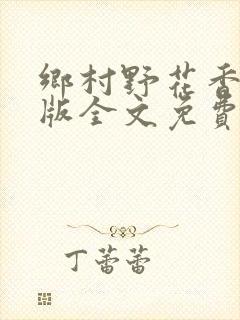 鄉村野花香
版全文免費
丁蕾蕾